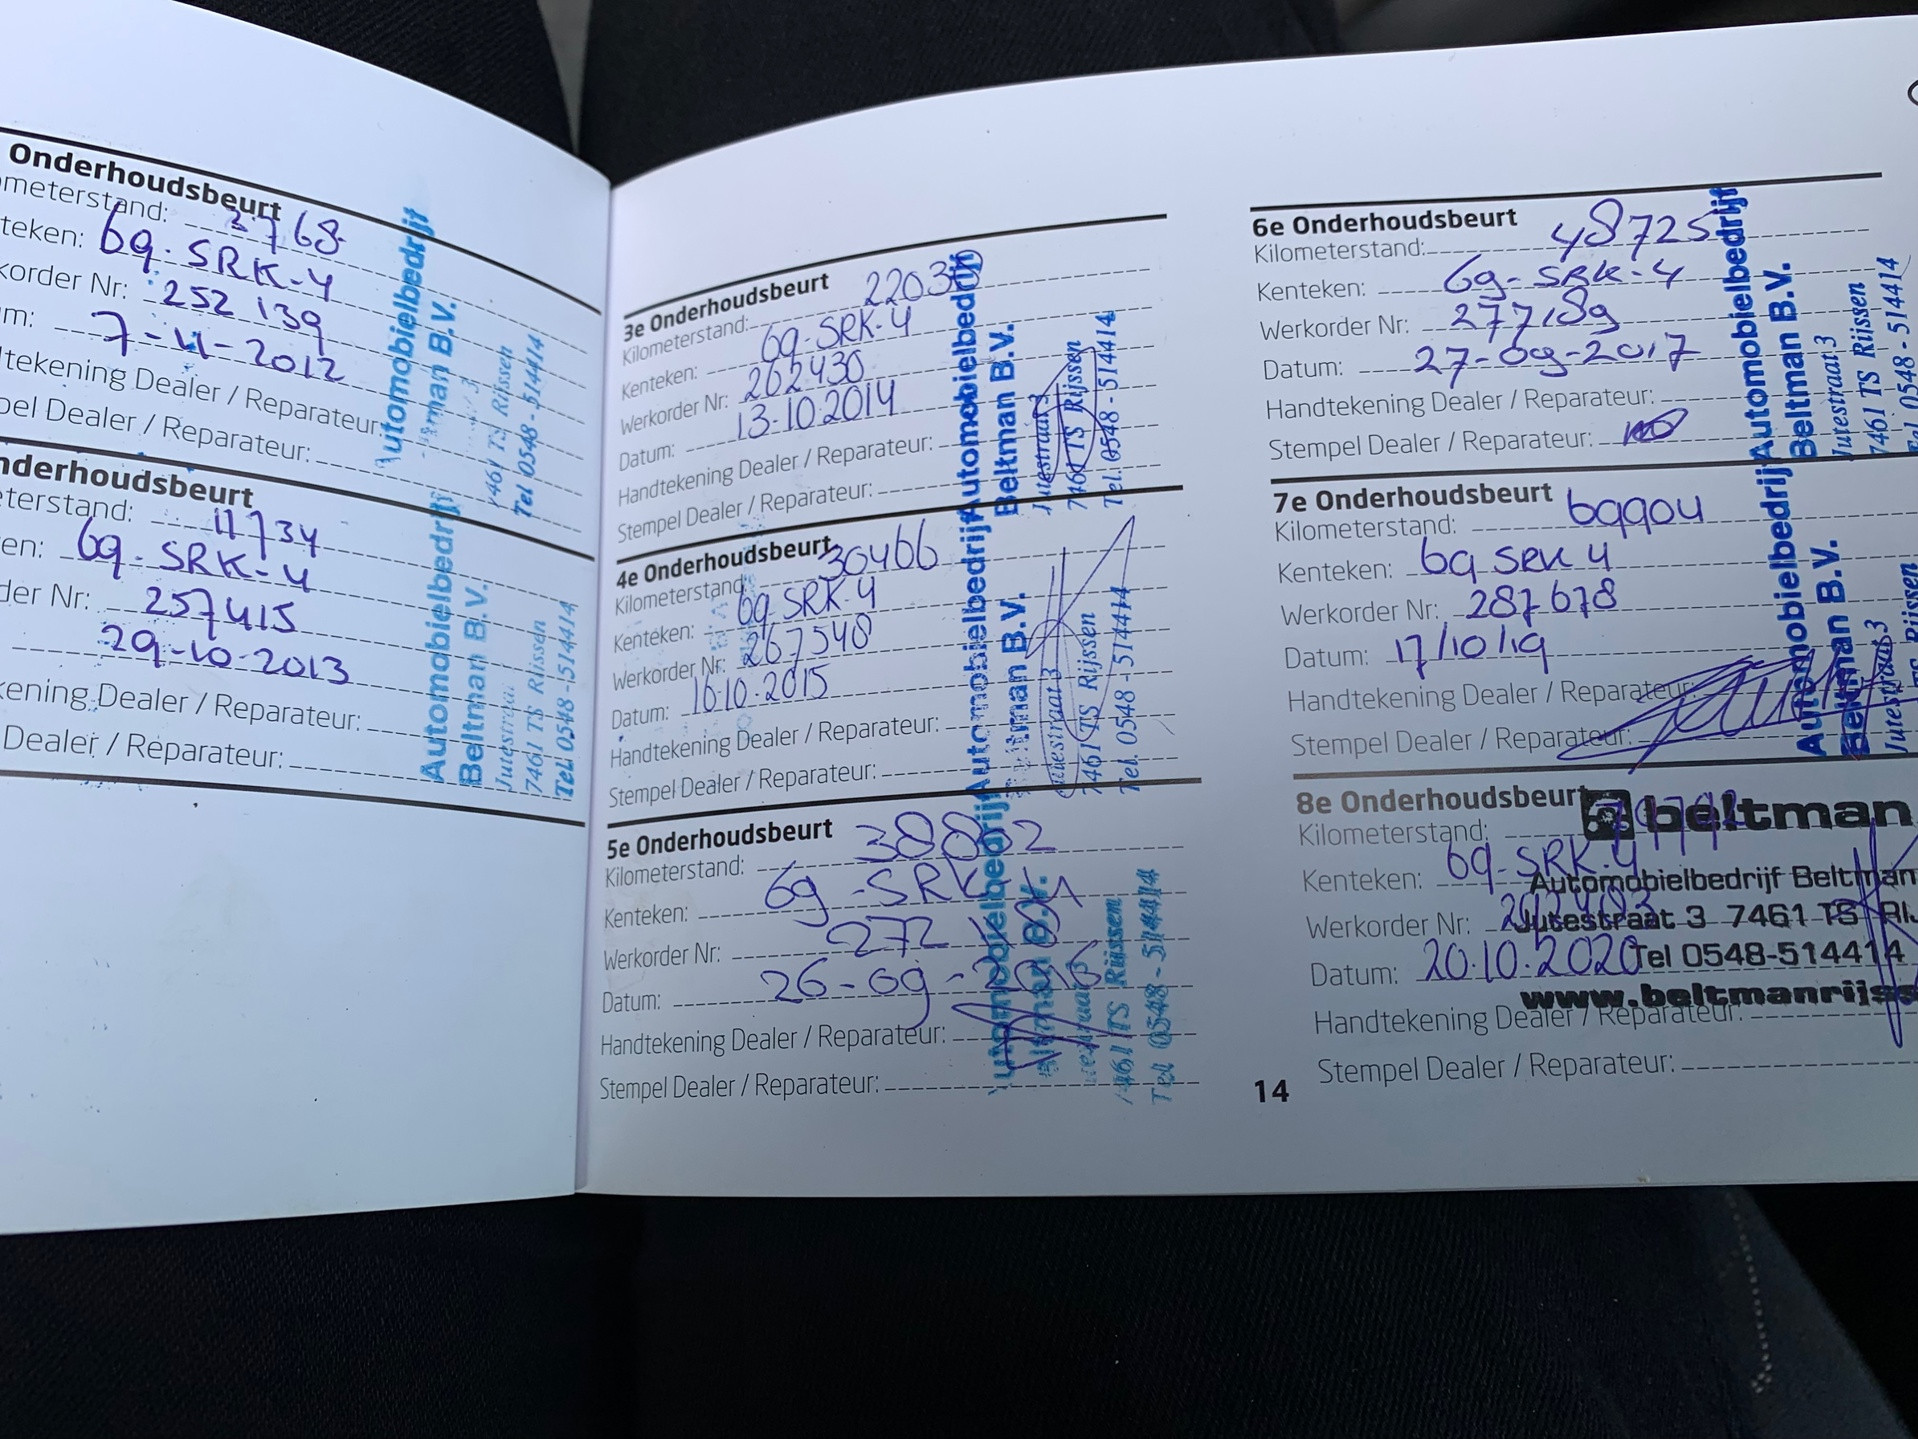 Onderhoudsbeurt
ometerstand: 3768
teken: 69-SRK-4
korder Nr: 252 139
m: 7-11-2012
tekening Dealer / Reparateur:
pel Dealer / Reparateur:
Automobielbedrijf
B.V.
7461 TS Rijssen
Tel 0548-514414
nderhoudsbeurt
eterstand: 11734
en: 69-SRK-4
der Nr: 257415
29-10-2013
kening Dealer / Reparateur:
Dealer / Reparateur:
Automobielbedrijf
Beltman B.V.
7461 TS Rijssen
Tel. 0548-514414
3e Onderhoudsbeurt
Kilometerstand:
Kenteken: 69-SRK-4
Werkorder Nr: 262430
Datum: 13-10-2014
Handtekening Dealer / Reparateur:
Stempel Dealer / Reparateur:
Automobielbedrijf
Beltman B.V.
Jutestraat 3
7461 TS Rijssen
Tel. 0548-514414
4e Onderhoudsbeurt
Kilometerstand: 30466
Kenteken: 69-SRK-4
Werkorder Nr: 267548
Datum: 16-10-2015
Handtekening Dealer / Reparateur:
Stempel Dealer / Reparateur:
Automobielbedrijf
Beltman B.V.
Jutestraat 3
7461 TS Rijssen
Tel. 0548-514414
5e Onderhoudsbeurt
Kilometerstand: 38862
Kenteken: 69-SRK-4
Werkorder Nr: 272
Datum: 26-09-2016
Handtekening Dealer / Reparateur:
Stempel Dealer / Reparateur:
Automobielbedrijf
Beltman B.V.
7461 TS Rijssen
Tel 0548-514414
6e Onderhoudsbeurt
Kilometerstand: 48725
Kenteken: 69-SRK-4
Werkorder Nr: 277189
Datum: 27-09-2017
Handtekening Dealer / Reparateur:
Stempel Dealer / Reparateur:
Automobielbedrijf
Beltman B.V.
Jutestraat 3
7461 TS Rijssen
Tel. 0548-514414
7e Onderhoudsbeurt
Kilometerstand: 69904
Kenteken: 69 SRK 4
Werkorder Nr: 287678
Datum: 17/10/19
Handtekening Dealer / Reparateur:
Stempel Dealer / Reparateur:
Automobielbedrijf
Beltman B.V.
Jutestraat 3
Rijssen
8e Onderhoudsbeurt
Kilometerstand:
Kenteken: 69-SRK-4
Werkorder Nr:
Datum: 20.10.2020
Handtekening Dealer / Reparateur:
Stempel Dealer / Reparateur:
beltman
Automobielbedrijf Beltman
Jutestraat 3 7461 TS RIJ
Tel 0548-514414
www.beltmanrijss
14